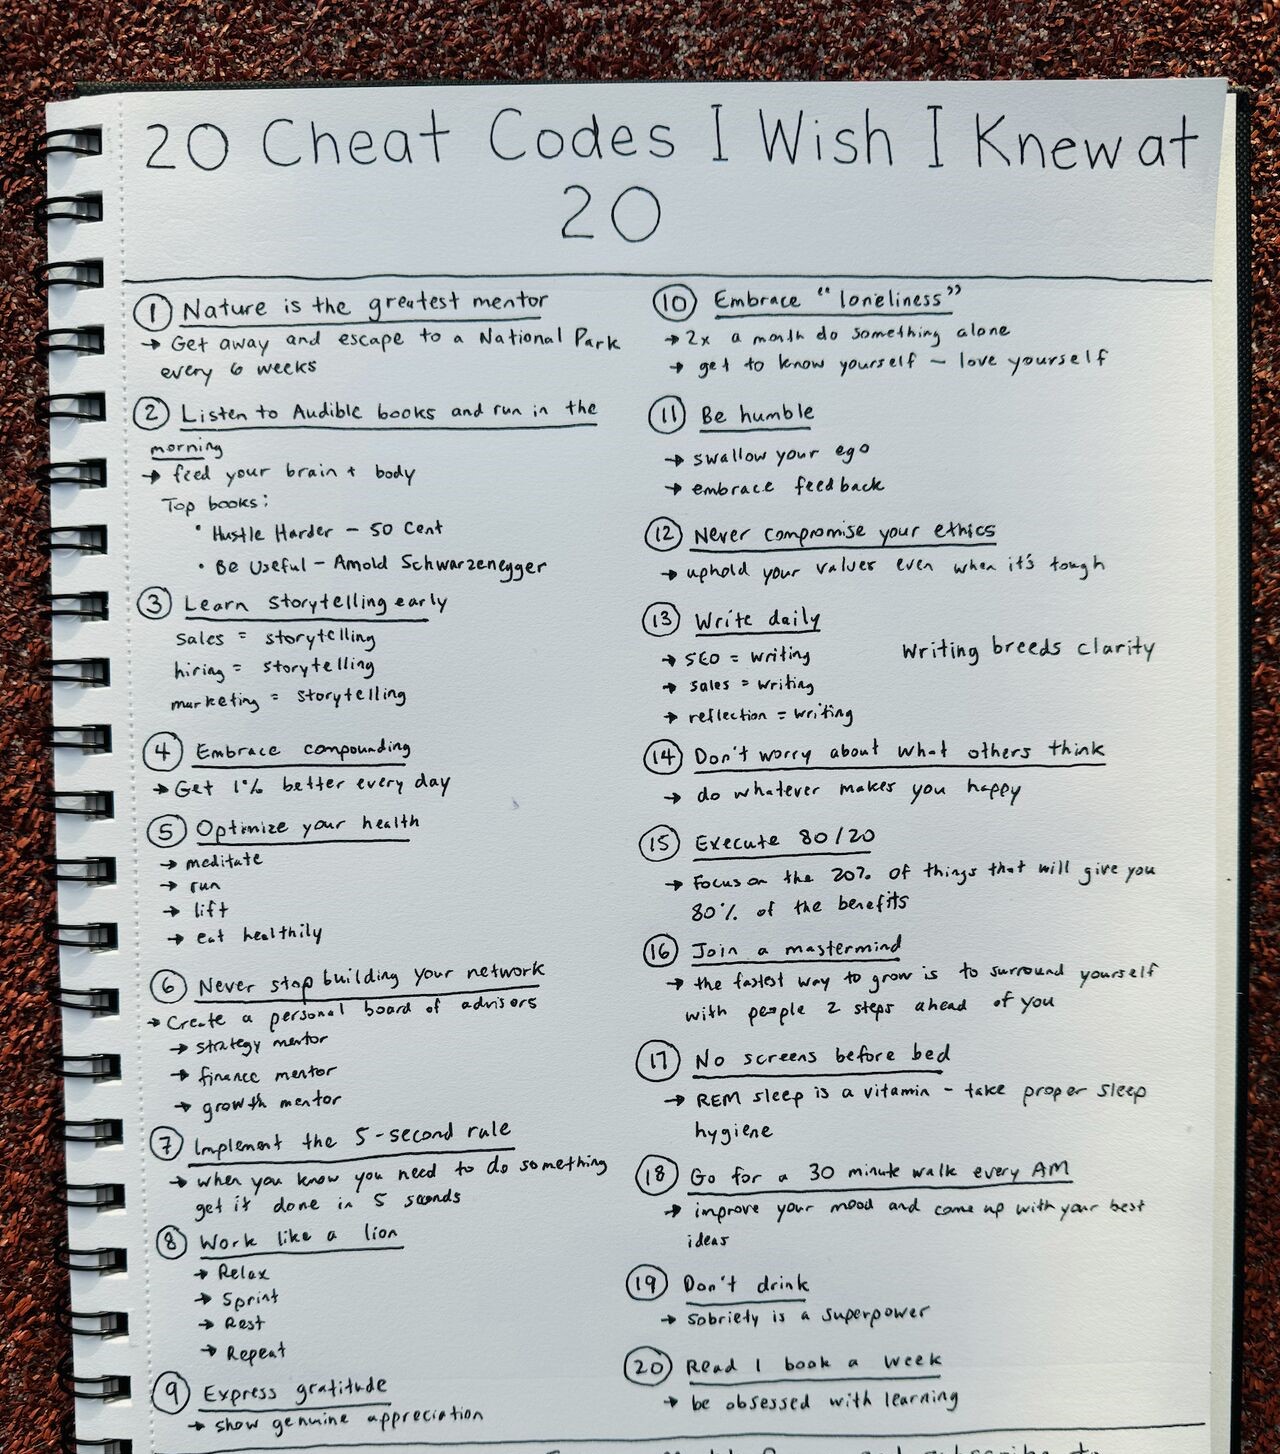 20 Cheat Codes I Wish I Knew at
20
① Nature is the greatest mentor
→ Get away and escape to a National Park
every 6 weeks
② Listen to Audible books and run in the
morning
→ feed your brain + body
Top books:
• Hustle Harder – 50 Cent
• Be Useful – Arnold Schwarzenegger
③ Learn storytelling early
sales = storytelling
hiring = storytelling
marketing = storytelling
④ Embrace compounding
→ Get 1% better every day
⑤ Optimize your health
→ meditate
→ run
→ lift
→ eat healthily
⑥ Never stop building your network
→ Create a personal board of advisors
→ strategy mentor
→ finance mentor
→ growth mentor
⑦ Implement the 5-second rule
→ when you know you need to do something
get it done in 5 seconds
⑧ Work like a lion
→ Relax
→ Sprint
→ Rest
→ Repeat
⑨ Express gratitude
→ show genuine appreciation
⑩ Embrace "loneliness"
→ 2x a month do something alone
→ get to know yourself – love yourself
⑪ Be humble
→ swallow your ego
→ embrace feedback
⑫ Never compromise your ethics
→ uphold your values even when it's tough
⑬ Write daily
→ SEO = writing
→ sales = writing
→ reflection = writing
Writing breeds clarity
⑭ Don't worry about what others think
→ do whatever makes you happy
⑮ Execute 80/20
→ Focus on the 20% of things that will give you
80% of the benefits
⑯ Join a mastermind
→ the fastest way to grow is to surround yourself
with people 2 steps ahead of you
⑰ No screens before bed
→ REM sleep is a vitamin – take proper sleep
hygiene
⑱ Go for a 30 minute walk every AM
→ improve your mood and come up with your best
ideas
⑲ Don't drink
→ Sobriety is a superpower
⑳ Read 1 book a week
→ be obsessed with learning